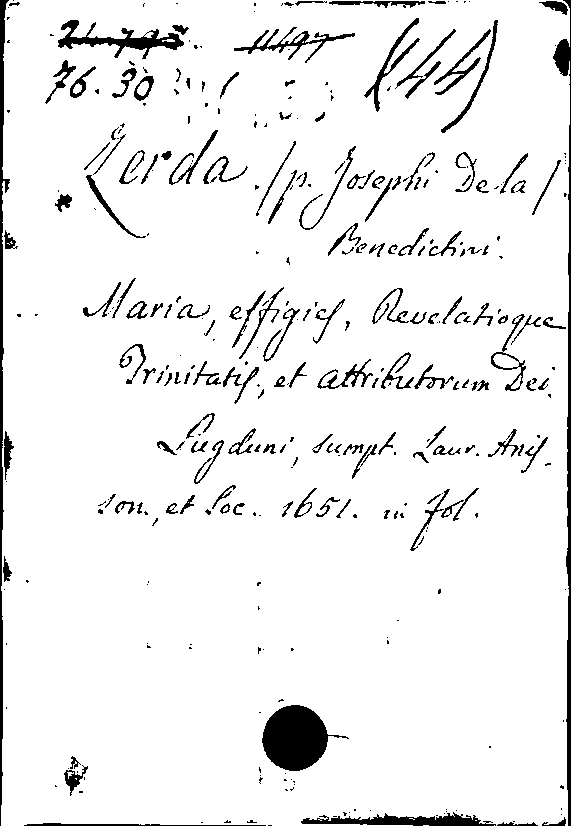 21.793. 11497
76.30 (144)
Zerda. /p. Josephi De la/.
Benedictini.
Maria, effigies, Revelatioque
Trinitatis, et attributorum Dei.
Lugduni, sumpt. Laur. Anis-
son., et Soc. 1651. in fol.